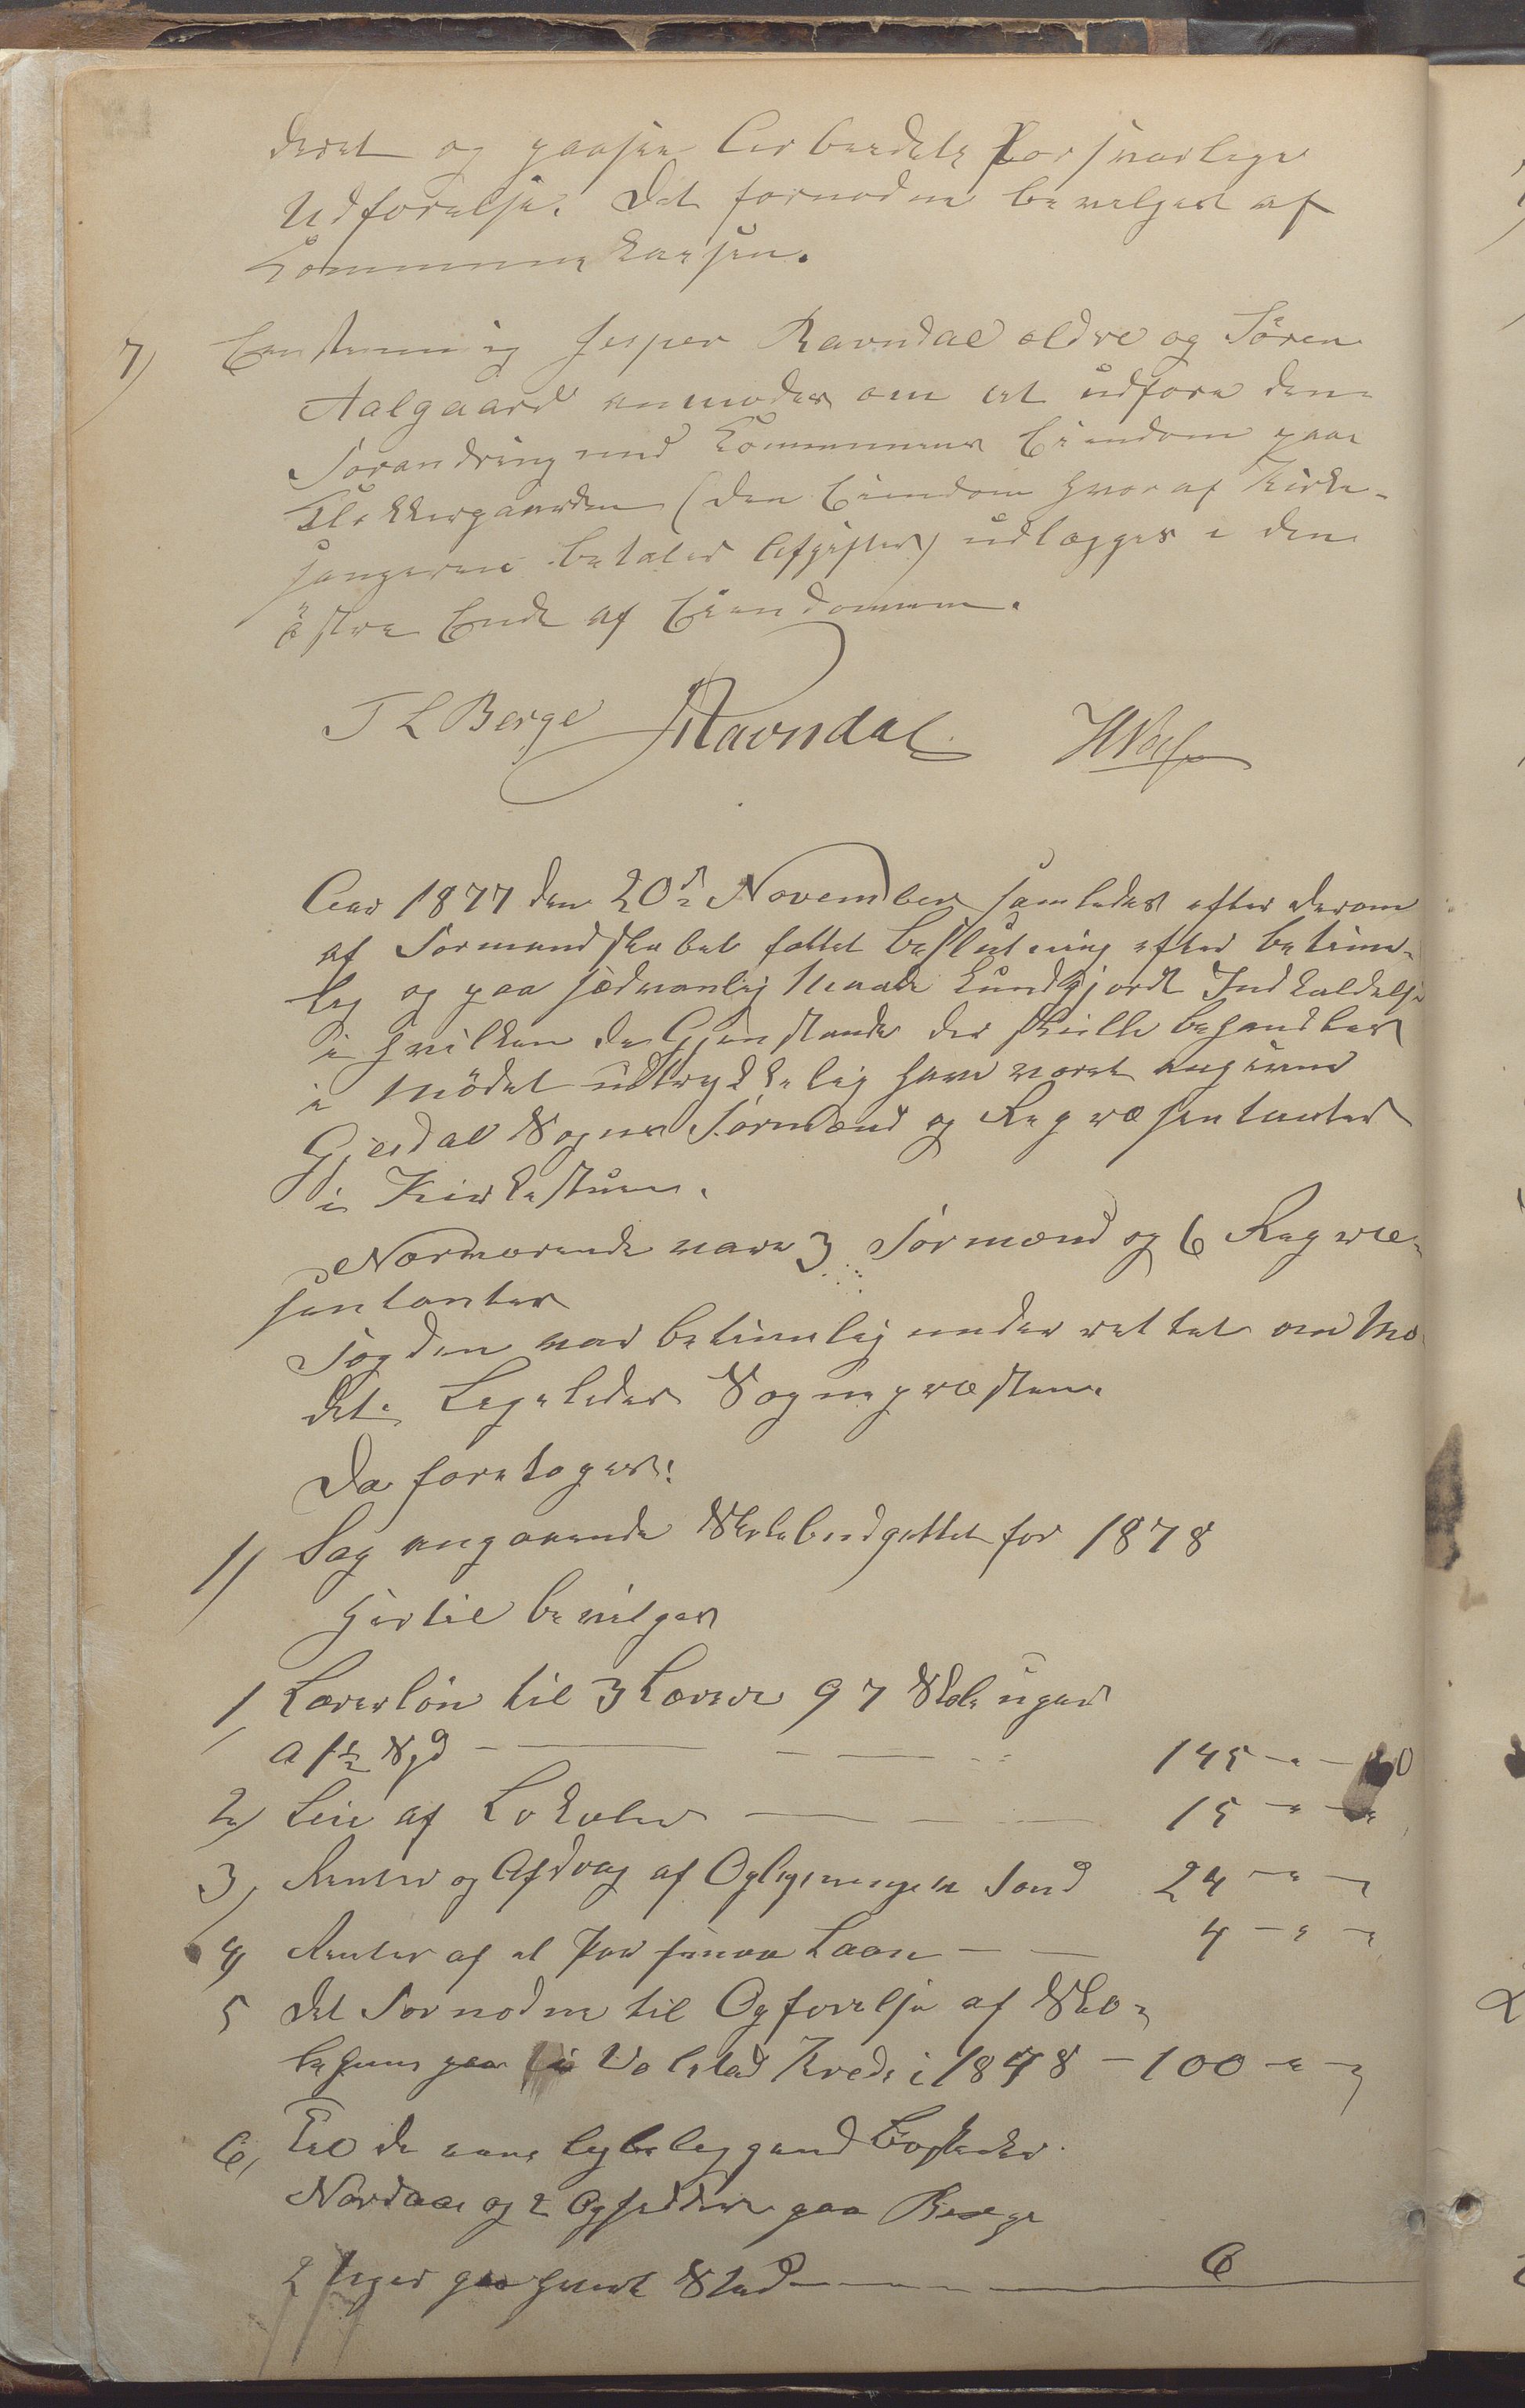 deret og paase Arbeidets forsvarlige
Udførelse. Det fornødne bevilges af
Kommunekassen.
7) Eenstemmig Jesper Ravndal ældre og Sören
Aalgaard anmodes om at udføre den
Forandring med Kommunens Eiendom paa
Klokkergaarden (den Eiendom hvoraf Kirke-
sangeren betaler Afgifter) udlægges i den
östre Ende af Eiendommen.
T L Berge Ravndal
Aar 1877 den 20de November samledes efter derom
af Formandskabet fattet Beslutning efter betime-
lig og paa sædvanlig Maade kundgjordt Indkaldelse
i hvilken de Gjenstande der skulle behandles
i Mödet udtrykkelig have været angivne
Gjesdal Sogns Formænd og Repræsentanter
i Kirkestuen.
Nærværende vare 3 Formænd og 6 Repræ-
sentanter
Fogden var betimelig underrettet om Mö
det. Ligeledes Sognepræsten.
Da foretoges:
1) Sag angaaende Skolebudgettet for 1878
Hertil bevilges
1, Lærerlön til 3 Lærere 97 Skoleuger
a 1½ Spd 145 - " -
2) Leie af Lokaler 15 - " - "
3, Renter og Afdrag af Oplysningens Fond 24 - " - "
4) Renter af et Laan 4 - " - "
5 Det Fornødne til Opførelse af Sko-
lehuus paa Volstad Kreds i 1878 - 100 - " - "
6, Til de
og 2 Opsiddere paa Berge
2 Uger paa hvert Sted 6